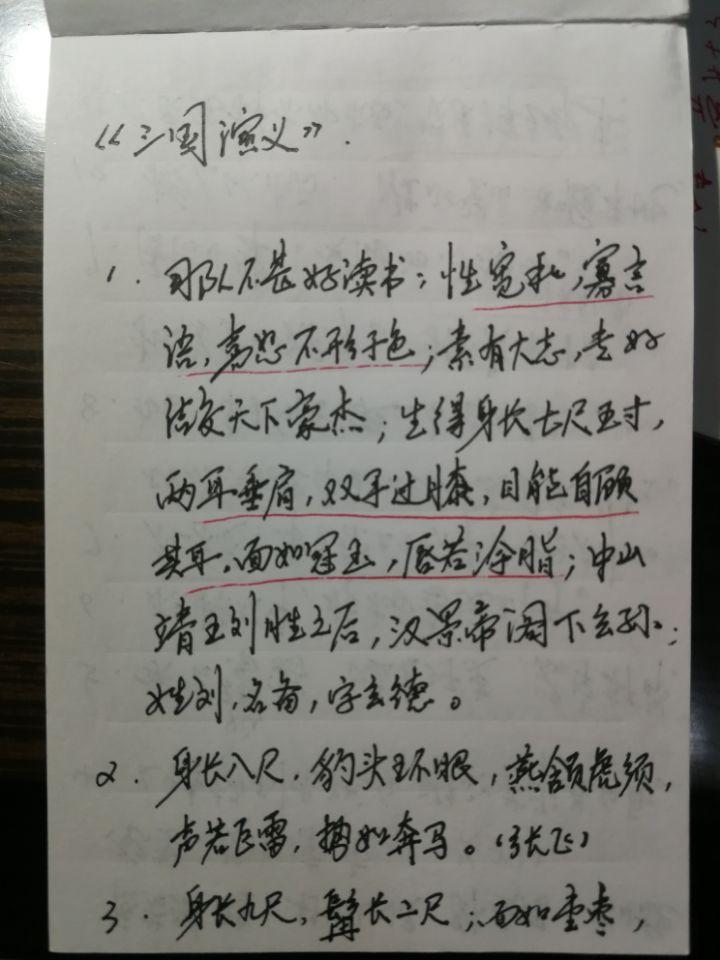 《三国演义》.
1. 那队不甚好读书；性宽和，寡言
语，喜怒不形于色；素有大志，专好
结交天下豪杰；生得身长七尺五寸，
两耳垂肩，双手过膝，目能自顾
其耳，面如冠玉，唇若涂脂；中山
靖王刘胜之后，汉景帝阁下玄孙；
姓刘，名备，字玄德。
2. 身长八尺，豹头环眼，燕颔虎须，
声若飞雷，势如奔马。（张飞）
3. 身长九尺，髯长二尺；面如重枣，